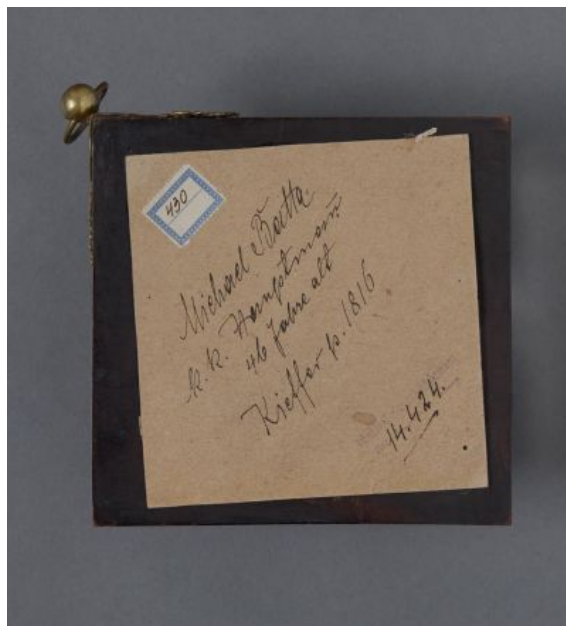 430
Michael
k. k. Hauptmann
46 Jahre alt
Kieffer p. 1816
14.424.